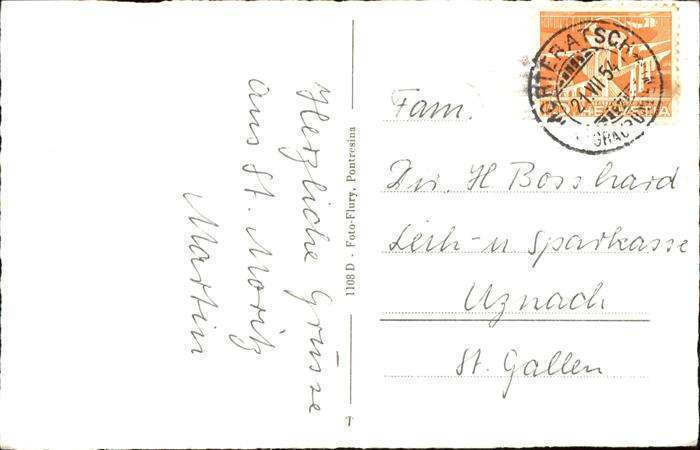 Herzliche Grüsse
aus St. Moritz
Martin
1108 D - Foto-Flury, Pontresina
T
Fam.
Dir. H Bosshard
Leih- u Sparkasse
Uznach
St. Gallen
21.VII.54